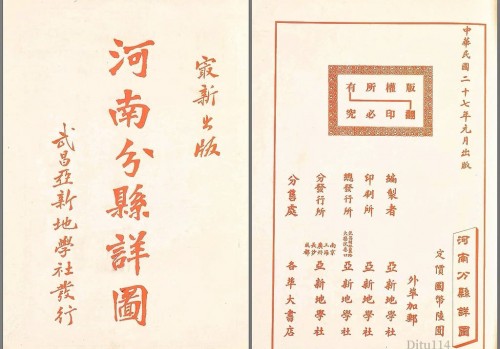 㝡新出版
河南分縣詳圖
武昌亞新地學社發行
中華民國二十七年元月出版
版權所有
翻印必究
編製者 亞新地學社
印刷所 亞新地學社
總發行所 亞新地學社
分發行所 亞新地學社
分售處 各埠大書店
河南分縣詳圖
定價國幣陸圓
外埠加郵
Ditu114